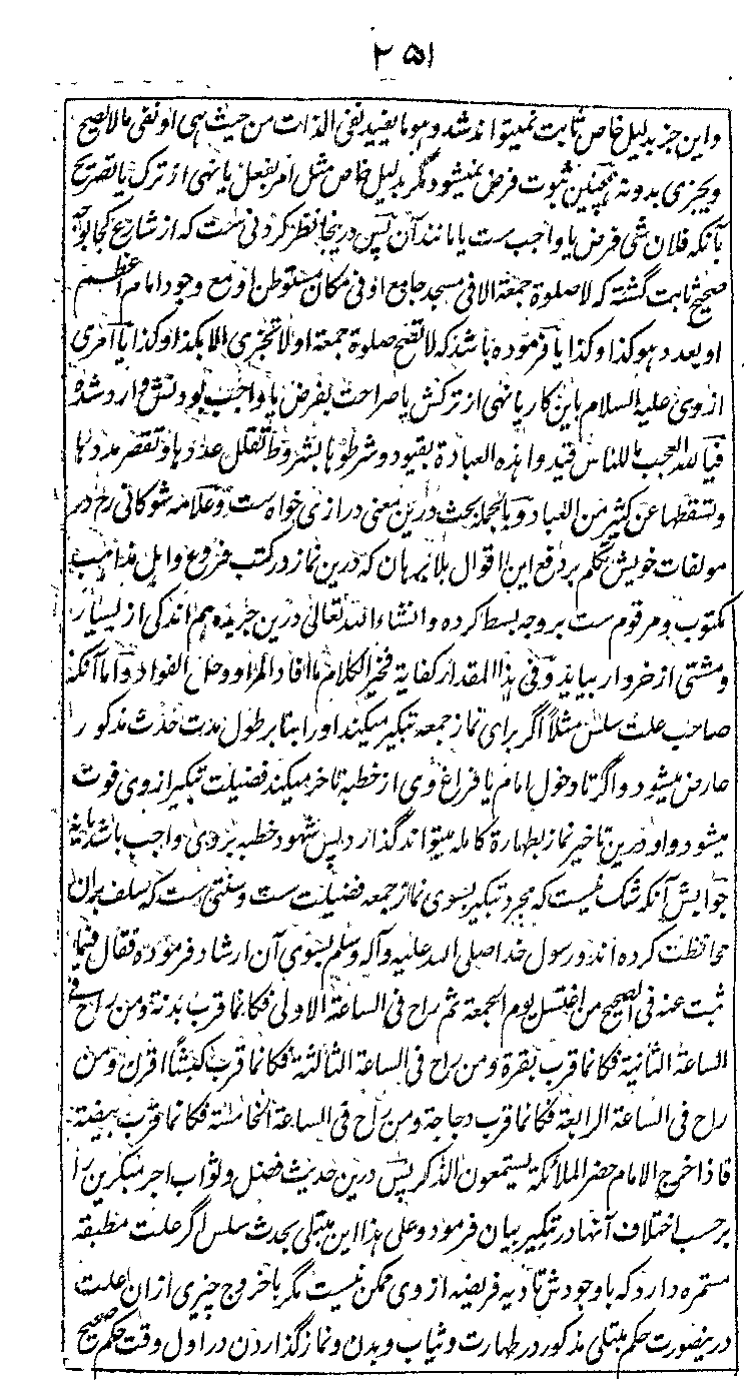 ۲۵۱
واین جز بدلیل خاص ثابت نمیتواند شد و هو ما یفید نفی الذات من حیث هی او نفی ما لا یصح
ویجزی بدونه همچنین ثبوت فرض نمیشود مگر بدلیل خاص مثل امر بفعل یا نهی از ترک یا تصریح
بآنکه فلان شی فرض یا واجب ست یا مانند آن پس درینجا نظر کردنی ست که از شارع کجا بوجه
صحیح ثابت گشته که لا صلوة جمعة الا فی مسجد جامع او فی مکان مستوطن او مع وجود امام اعظم
او بعدد هو کذا وکذا یا فرموده باشد که لا تصح صلوة جمعة او لا تجزی الا بکذا وکذا یا امری
از وی علیه السلام باین کار یا نهی از ترکش یا صراحت بفرض یا واجب بودنش وارد شده
فیا لله العجب ما للناس قیدوا هذه العبادة بقیود وشرطوها بشروط تقلل عددها وتقصر مددها
وتسقطها عن کثیر من العباد وبالجمله بحث درین معنی درازی خواه ست وعلامه شوکانی رح در
مولفات خویش تکلم بر دفع این اقوال بلا برهان که درین نماز در کتب فروع واهل مذاهب
مکتوب ومرقوم ست بروجه بسط کرده وانشاء الله تعالی درین جریده هم اندکی از بسیار
ومشتی از خروار بیاید وفی هذا المقدار کفایة فخیر الکلام ما افاد المراد ودخل الفواد واما آنکه
صاحب علت سلس مثلا اگر برای نماز جمعه تبکیر میکند اورا بنابر طول مدت حدث مذکور را
عارض میشود واگر تا دخول امام یا فراغ وی از خطبه تاخر میکند فضیلت تبکیر از وی فوت
میشود واو درین تاخیر نماز بطهارة کامله میتواند گذارد پس شهود خطبه بروی واجب باشد یا نه
جوابش آنکه شک نیست که مجرد تبکیر بسوی نماز جمعه فضیلت ست وسنتی ست که سلف بران
محافظت کرده اند ورسول خدا صلی الله علیه وآله وسلم بسوی آن ارشاد فرموده فقال فیما
ثبت عنه فی الصحیح من اغتسل یوم الجمعة ثم راح فی الساعة الاولی فکانما قرب بدنة ومن راح فی
الساعة الثانیة فکانما قرب بقرة ومن راح فی الساعة الثالثة فکانما قرب کبشا اقرن ومن
راح فی الساعة الرابعة فکانما قرب دجاجة ومن راح فی الساعة الخامسة فکانما قرب بیضة
فاذا خرج الامام حضر الملائکة یستمعون الذکر پس درین حدیث فضل وثواب اجر مبکرین را
برحسب اختلاف آنها در تبکیر بیان فرمود وعلی هذا این مبتلی بحدث سلس اگر علت مطبقه
مستمره دارد که با وجودش تادیه فریضه از وی ممکن نیست مگر با خروج چیزی ازان علت
درینصورت حکم مبتلی مذکور در طهارت وثیاب وبدن ونماز گذاردن در اول وقت حکم صحیح